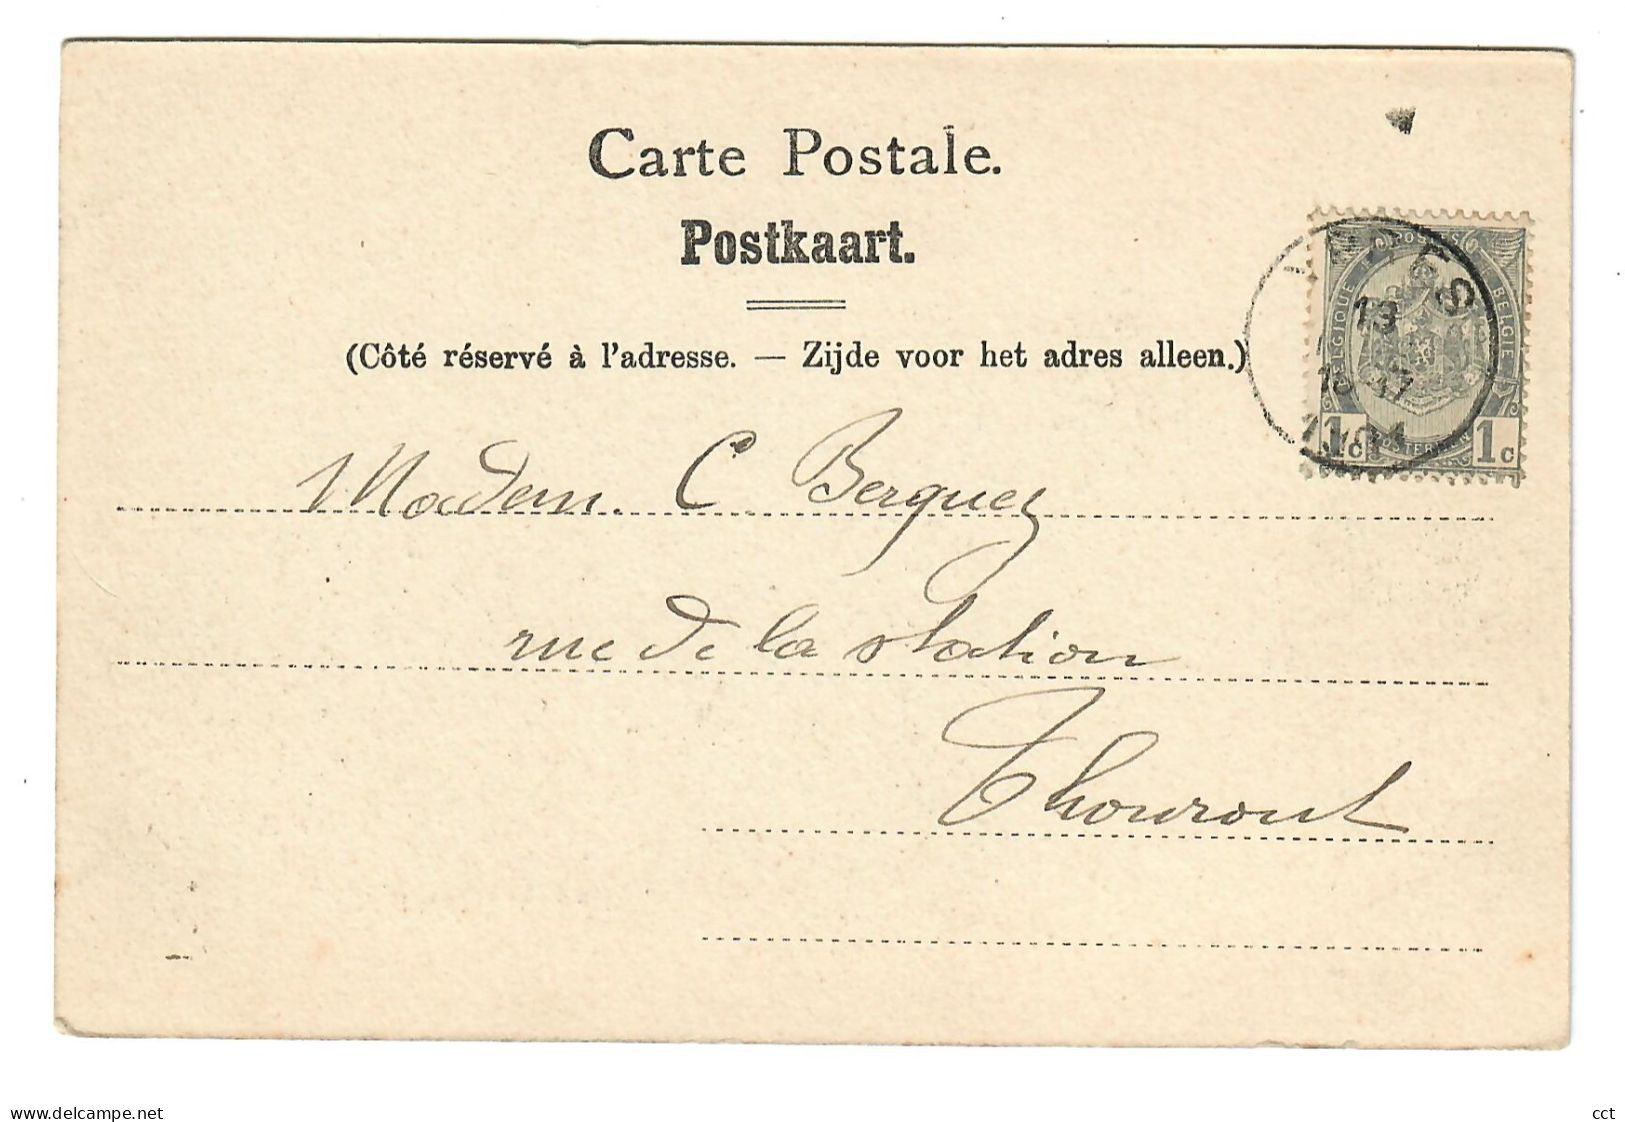 Carte Postale.
Postkaart.
(Côté réservé à l'adresse. — Zijde voor het adres alleen.)
POSTES
BELGIQUE BELGIE
YPRES
13
1c 1c
Madem. C Berquez
rue de la station
Thourout
delcampe.net
cct